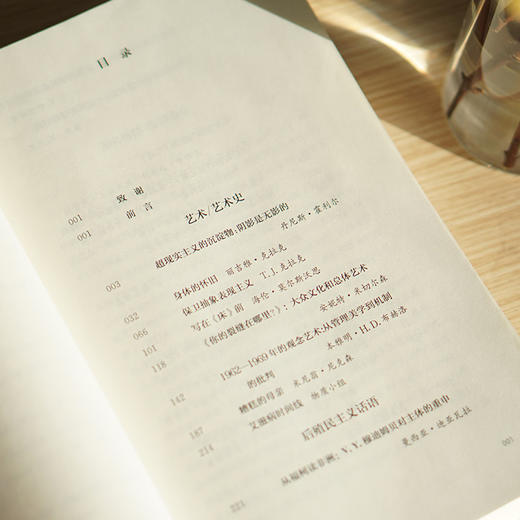 目录
001 致谢
001 前言
艺术/艺术史
超现实主义的沉淀物:阴影是无影的
003 丹尼斯·霍利尔
032 身体的怀旧 丽吉雅·克拉克
066 保卫抽象表现主义 T.J.克拉克
101 写在《床》前 海伦·莫尔斯沃思
118 《你的裂缝在哪里?》:大众文化和总体艺术
安妮特·米切尔森
1962—1969年的观念艺术:从管理美学到机制
142 的批判 本雅明·H.D.布赫洛
187 糟糕的母亲 米尼翁·尼克森
214 艾滋病时间线 物质小组
后殖民主义话语
从福柯读非洲:V.Y.穆迪姆贝对主体的重申
221 曼西亚·迪亚瓦拉
001